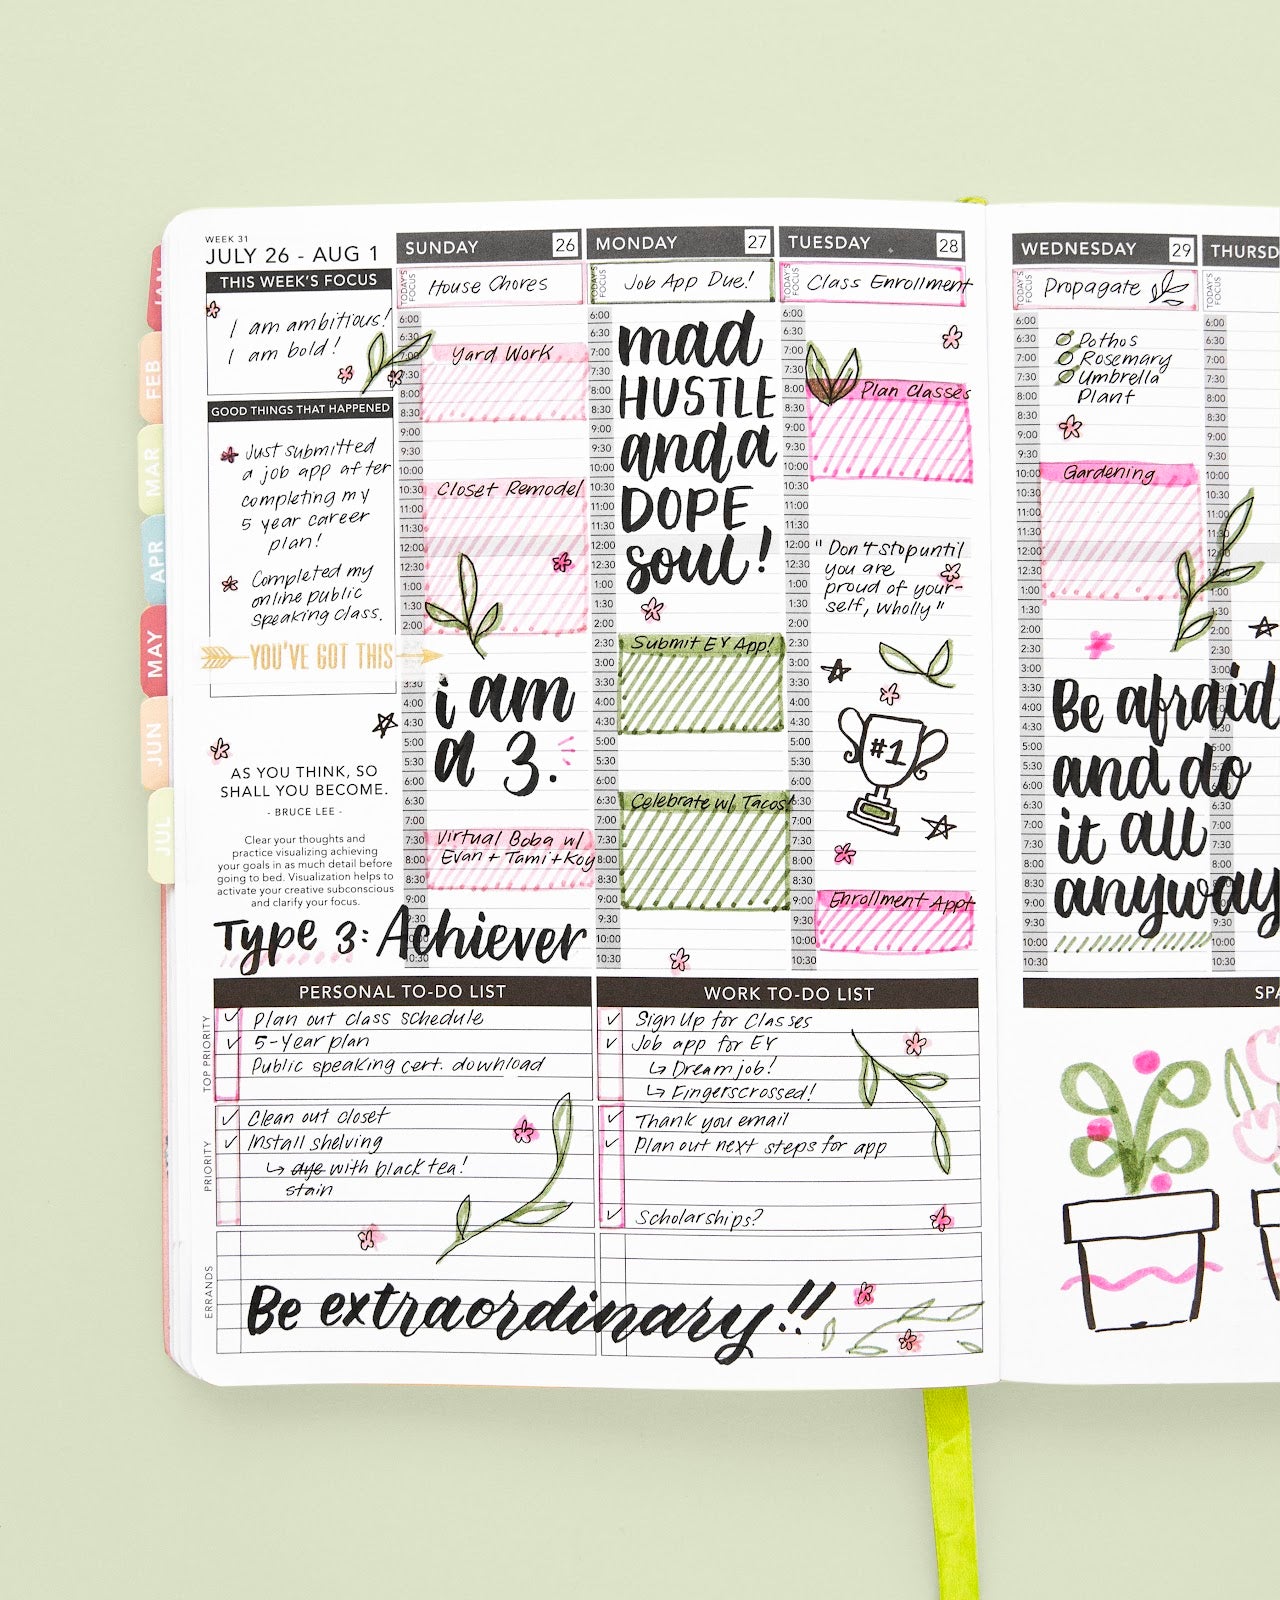 WEEK 31
JULY 26 - AUG 1
THIS WEEK'S FOCUS
I am ambitious!
I am bold!
GOOD THINGS THAT HAPPENED
Just submitted
a job app after
completing my
5 year career
plan!
Completed my
online public
speaking class.
YOU'VE GOT THIS
AS YOU THINK, SO
SHALL YOU BECOME.
- BRUCE LEE -
Clear your thoughts and
practice visualizing achieving
your goals in as much detail before
going to bed. Visualization helps to
activate your creative subconscious
and clarify your focus.
Type 3: Achiever
SUNDAY 26
TODAY'S FOCUS
House Chores
6:00
6:30
7:00
7:30
8:00
8:30
9:00
9:30
10:00
10:30
11:00
11:30
12:00
12:30
1:00
1:30
2:00
3:30
4:00
4:30
5:00
5:30
6:00
6:30
7:00
7:30
8:00
8:30
9:00
9:30
10:00
10:30
Yard Work
Closet Remodel
i am
a 3.
Virtual Boba w/
Evan + Tami + Koy
MONDAY 27
TODAY'S FOCUS
Job App Due!
6:00
6:30
7:00
7:30
8:00
8:30
9:00
9:30
10:00
10:30
11:00
11:30
12:00
12:30
1:00
1:30
2:00
2:30
3:00
3:30
4:00
4:30
5:00
5:30
6:00
6:30
7:00
7:30
8:00
8:30
9:00
9:30
10:00
10:30
mad
HUSTLE
and a
DOPE
soul!
Submit EY App!
Celebrate w/ Tacos!
TUESDAY 28
TODAY'S FOCUS
Class Enrollment
6:00
6:30
7:00
7:30
8:00
8:30
9:00
9:30
10:00
10:30
11:00
11:30
12:00
12:30
1:00
1:30
2:00
2:30
3:00
3:30
4:00
4:30
5:00
5:30
6:00
6:30
7:00
7:30
8:00
8:30
9:00
9:30
10:00
10:30
Plan Classes
"Don't stop until
you are
proud of your-
self, wholly"
#1
Enrollment Appt
WEDNESDAY 29
TODAY'S FOCUS
Propagate
6:00
6:30
7:00
7:30
8:00
8:30
9:00
9:30
10:00
10:30
11:00
11:30
12:00
12:30
1:00
1:30
2:00
2:30
3:00
3:30
4:00
4:30
5:00
5:30
6:00
6:30
7:00
7:30
8:00
8:30
9:00
9:30
10:00
10:30
Pothos
Rosemary
Umbrella
Plant
Gardening
Be afraid
and do
it all
anyway
THURSD
TODAY'S FOCUS
PERSONAL TO-DO LIST
TOP PRIORITY
✓ Plan out class schedule
✓ 5-Year plan
Public speaking cert. download
PRIORITY
✓ Clean out closet
✓ Install shelving
↳ dye with black tea!
stain
ERRANDS
WORK TO-DO LIST
✓ Sign Up for Classes
✓ Job app for EY
↳ Dream job!
↳ Fingerscrossed!
✓ Thank you email
✓ Plan out next steps for app
✓ Scholarships?
Be extraordinary!!
SPA
JAN
FEB
MAR
APR
MAY
JUN
JUL